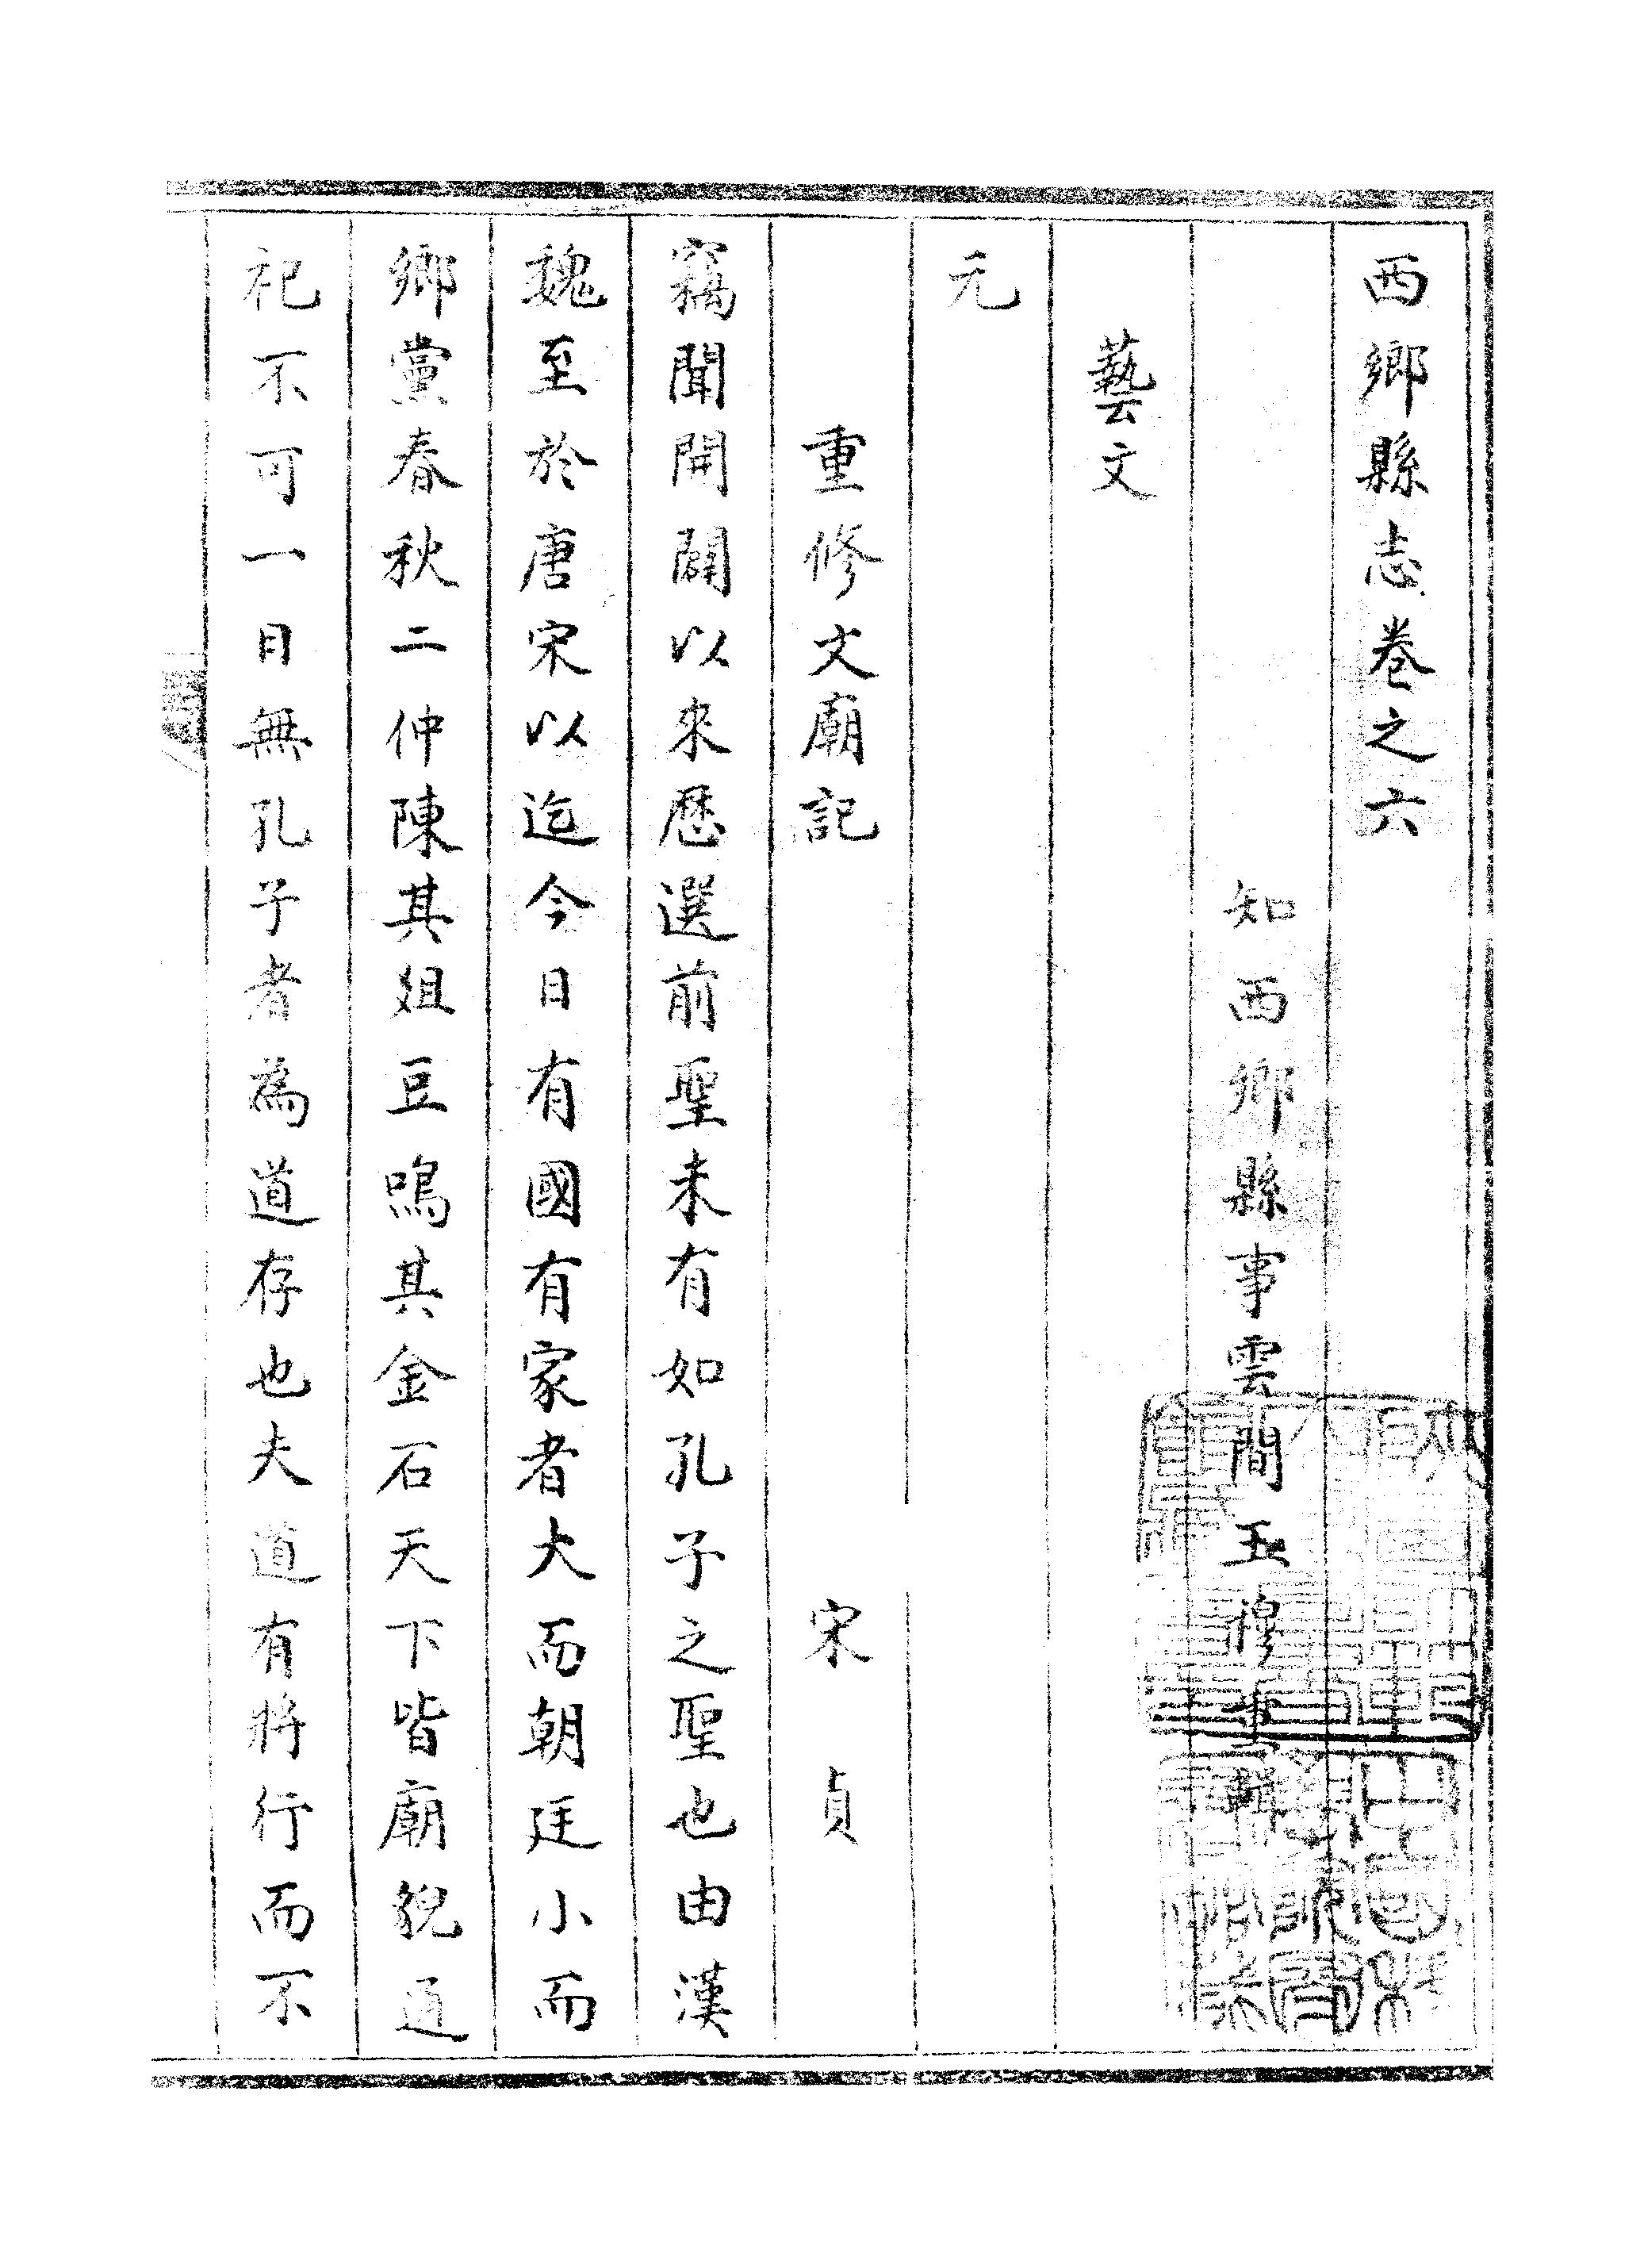 西鄉縣志卷之六
知西鄉縣事雲間王穆重輯
藝文
元
重修文廟記　宋貞
竊聞開闢以來歷選前聖未有如孔子之聖也由漢
魏至於唐宋以迄今日有國有家者大而朝廷小而
鄉黨春秋二仲陳其俎豆鳴其金石天下皆廟貌通
祀不可一日無孔子者為道存也夫道有將行而不